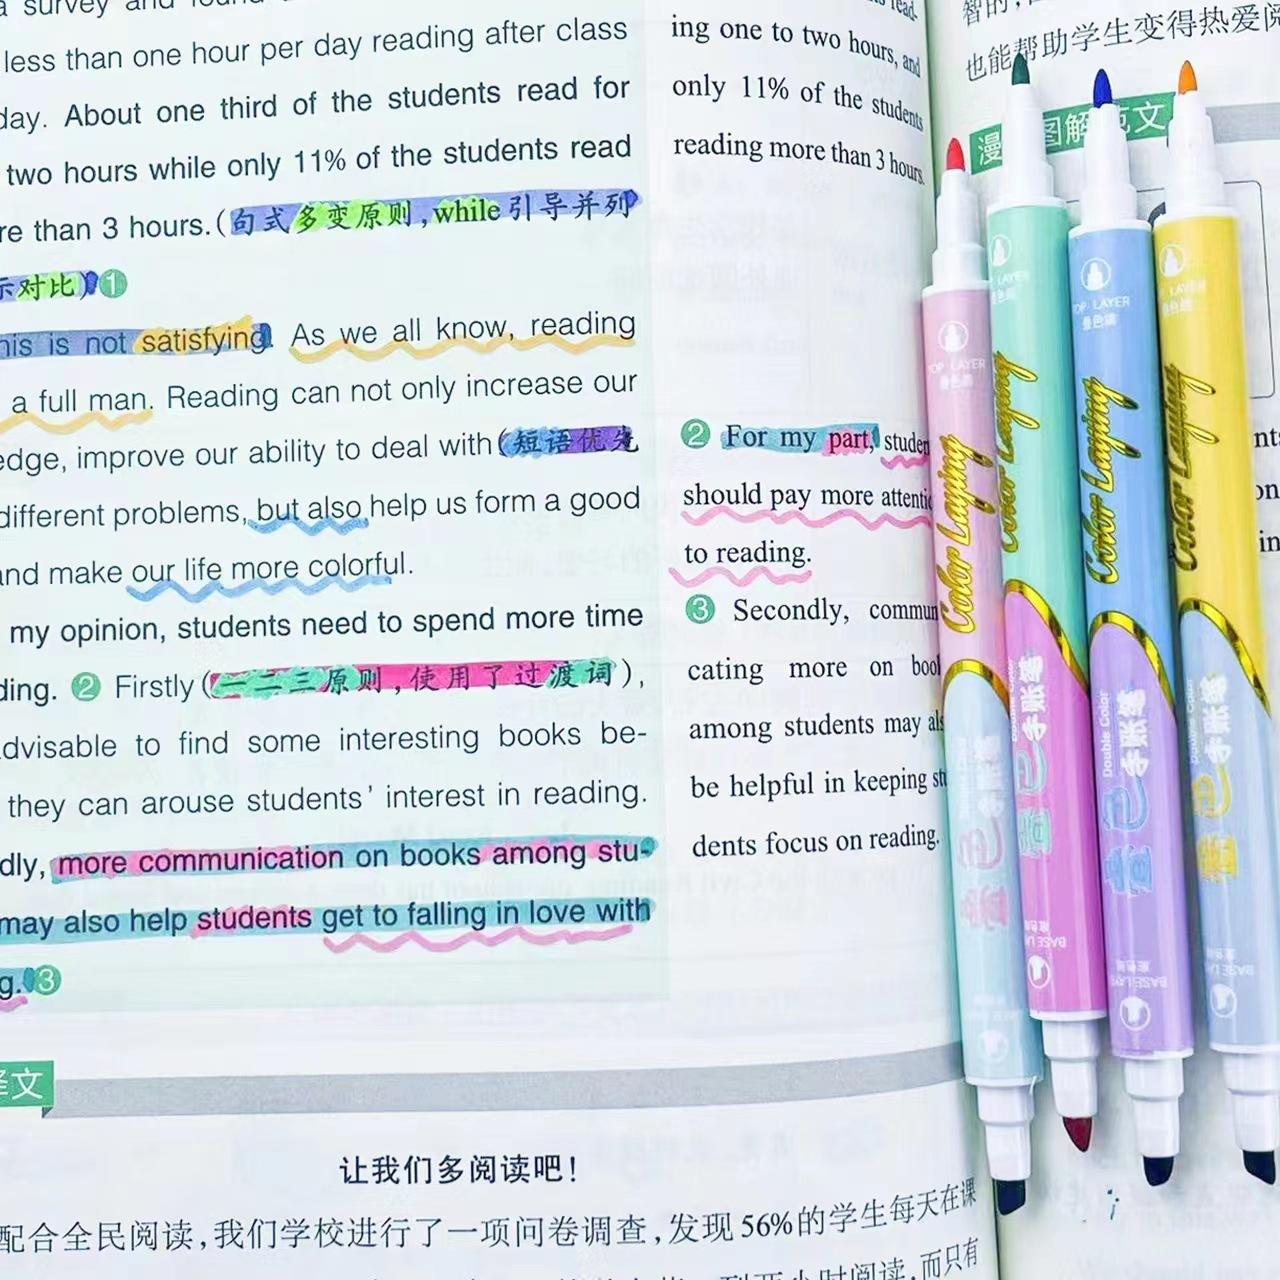 survey and found
less than one hour per day reading after class
day. About one third of the students read for
two hours while only 11% of the students read
re than 3 hours.(句式多变原则,while引导并列
示对比)①
his is not satisfying. As we all know, reading
a full man. Reading can not only increase our
edge, improve our ability to deal with(短语优先
different problems, but also help us form a good
and make our life more colorful.
my opinion, students need to spend more time
ding. ② Firstly(一二三原则,使用了过渡词),
advisable to find some interesting books be-
they can arouse students' interest in reading.
dly, more communication on books among stu-
may also help students get to falling in love with
g.③
read-
ing one to two hours, and
only 11% of the students
reading more than 3 hours.
② For my part, studen
should pay more attentio
to reading.
③ Secondly, commun
cating more on book
among students may als
be helpful in keeping stu
dents focus on reading.
译文
让我们多阅读吧!
配合全民阅读,我们学校进行了一项问卷调查,发现56%的学生每天在课
到两小时阅读,而只有
智的,
也能帮助学生变得热爱阅
漫 图解范文
nts
on
in
TOP·LAYER
叠色端
Color Laying
叠色手账笔
BASE LAYER
底色端
TOP·LAYER
叠色端
Color Laying
Double Color
叠色手账笔
BASE LAYER
底色端
TOP·LAYER
叠色端
Color Laying
Double Color
叠色手账笔
BASE LAYER
底色端
TOP·LAYER
叠色端
Color Laying
Double Color
叠色手账笔
BASE LAYER
底色端